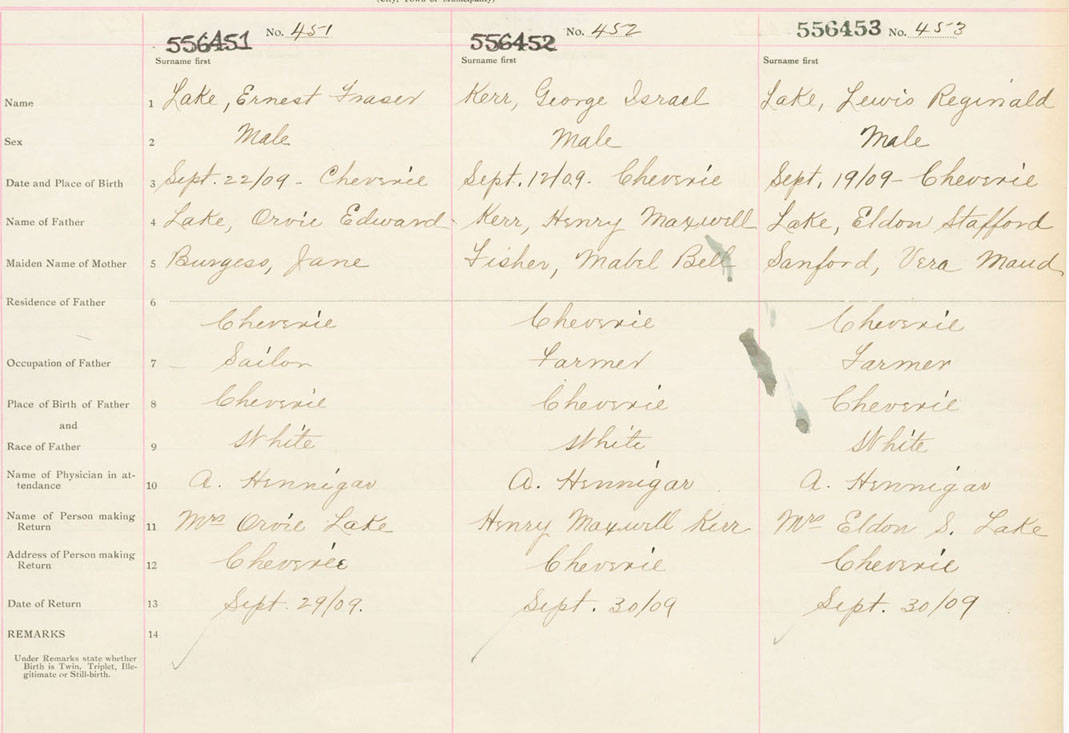 (City, Town or Municipality)
556451 No. 451 556452 No. 452 556453 No. 453
Surname first Surname first Surname first
Name 1 Lake, Ernest Fraser Kerr, George Israel Lake, Lewis Reginald
Sex 2 Male Male Male
Date and Place of Birth 3 Sept. 22/09 - Cheverie Sept. 12/09. Cheverie Sept, 19/09 - Cheverie
Name of Father 4 Lake, Orvie Edward Kerr, Henry Maxwell Lake, Eldon Stafford
Maiden Name of Mother 5 Burgess, Jane Fisher, Mabel Bell Sanford, Vera Maud
Residence of Father 6
Cheverie Cheverie Cheverie
Occupation of Father 7 Sailor Farmer Farmer
Place of Birth of Father 8 Cheverie Cheverie Cheverie
and
Race of Father 9 White White White
Name of Physician in at-
tendance 10 A. Hennigar A. Hennigar A. Hennigar
Name of Person making
Return 11 Mrs Orvie Lake Henry Maxwell Kerr Mrs Eldon S. Lake
Address of Person making
Return 12 Cheverie Cheverie Cheverie
Date of Return 13 Sept. 29/09. Sept. 30/09 Sept. 30/09
REMARKS 14
Under Remarks state whether
Birth is Twin, Triplet, Ille-
gitimate or Still-birth.